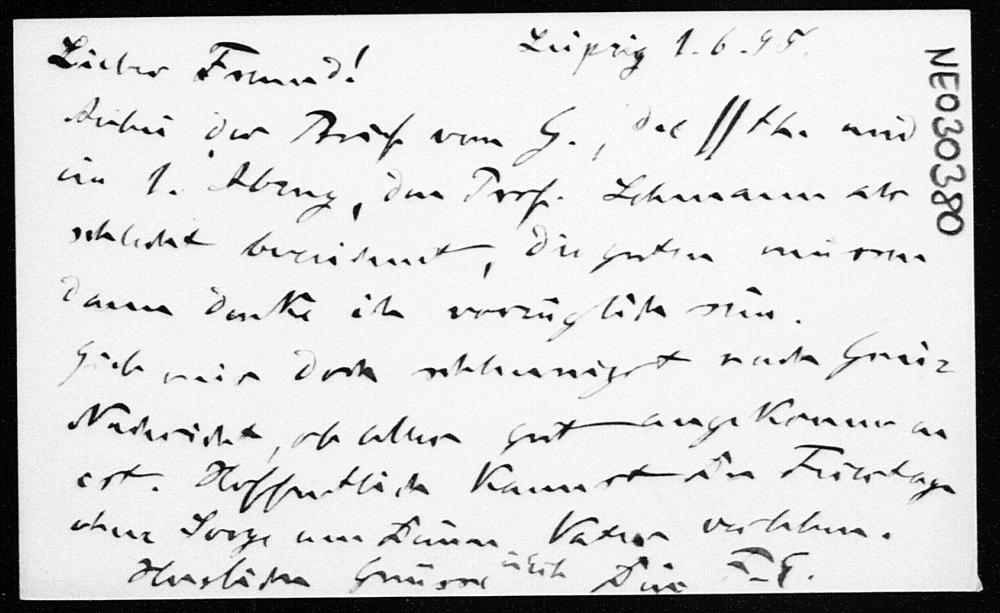 Leipzig 1. 6. 95.
Lieber Freund!
Anbei der Brief von G., das //the. und
ein 1. Abzug, den Prof. Lehmann als
schlecht bezeichnet, die guten müssen
dann denke ich vorzüglich sein.
Gieb mir doch schleunigst nach Greiz
Nachricht, ob alles gut angekommen
ist. Hoffentlich kannst Du Feiertage
ohne Sorge um Deinen Vater verleben.
Herzliche Grüsse Dein F.G.
NE030380